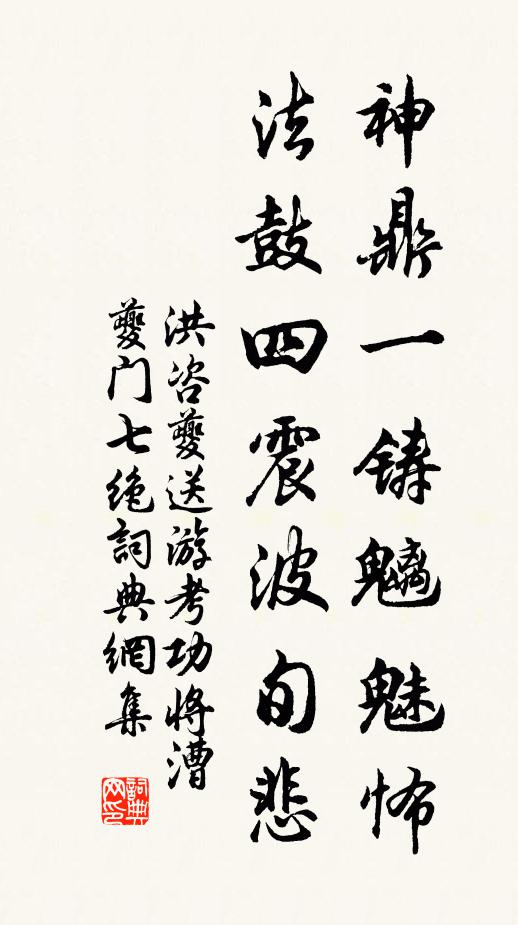 神鼎一鑄魑魅怖
法鼓四震波旬悲
洪咨夔送游考功將漕
夔門七絶詞典網集
詞典網印